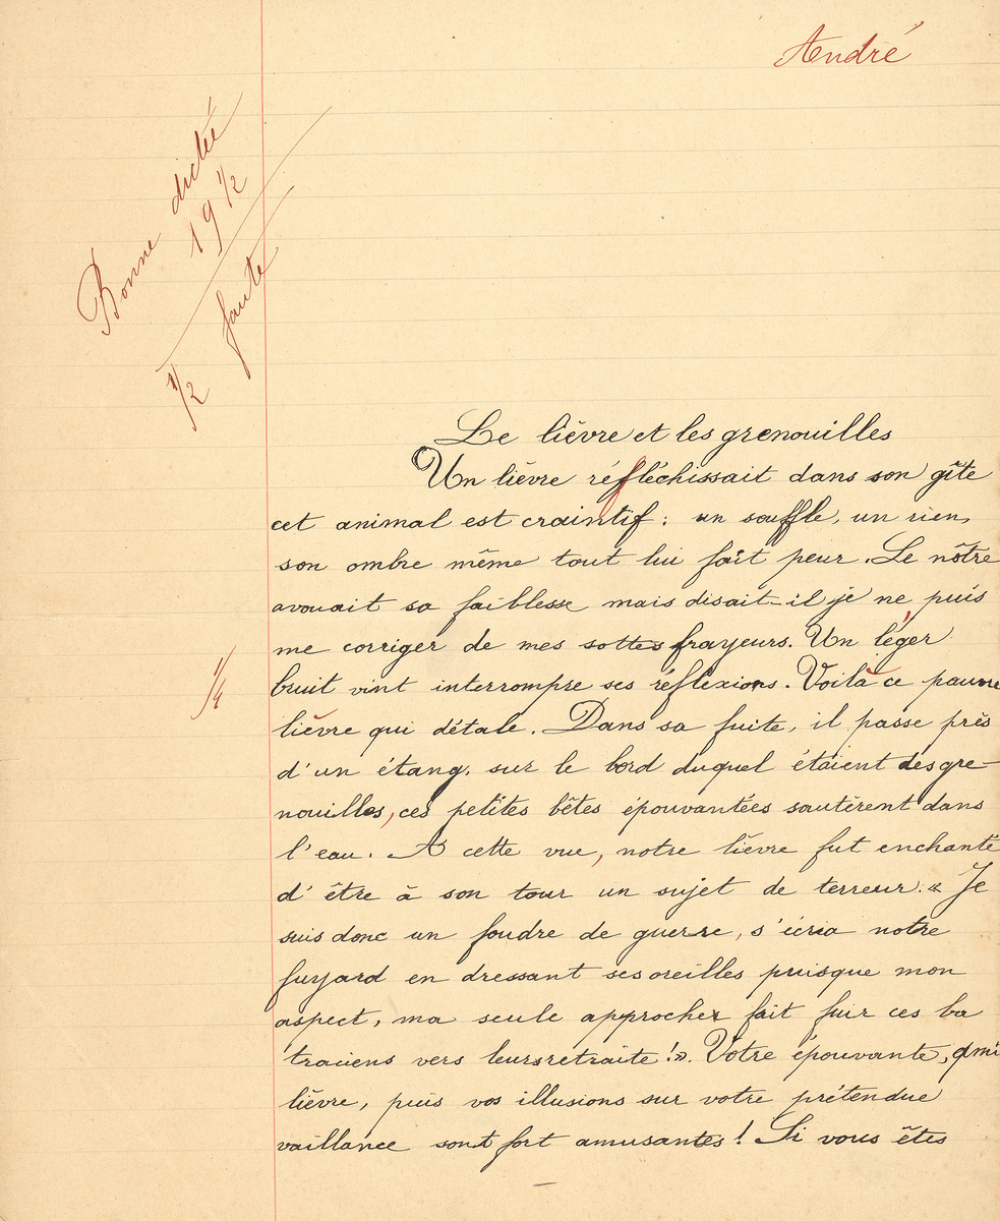 André
Bonne dictée
19 1/2
1/2 faute
Le lièvre et les grenouilles
Un lièvre réfléchissait dans son gîte
cet animal est craintif : un souffle, un rien,
son ombre même tout lui fait peur. Le nôtre
avouait sa faiblesse mais disait-il je ne puis
me corriger de mes sottes frayeurs. Un léger
bruit vint interrompre ses réflexions. Voilà ce pauvre
lièvre qui détale. Dans sa fuite, il passe près
d'un étang, sur le bord duquel étaient des gre-
nouilles, ces petites bêtes épouvantées sautèrent dans
l'eau. A cette vue, notre lièvre fut enchanté
d'être à son tour un sujet de terreur. « Je
suis donc un foudre de guerre, s'écria notre
fuyard en dressant ses oreilles puisque mon
aspect, ma seule approcher fait fuir ces ba
traciens vers leurs retraite ! ». Votre épouvante, ami
lièvre, puis vos illusions sur votre prétendue
vaillance sont fort amusantes ! Si vous êtes